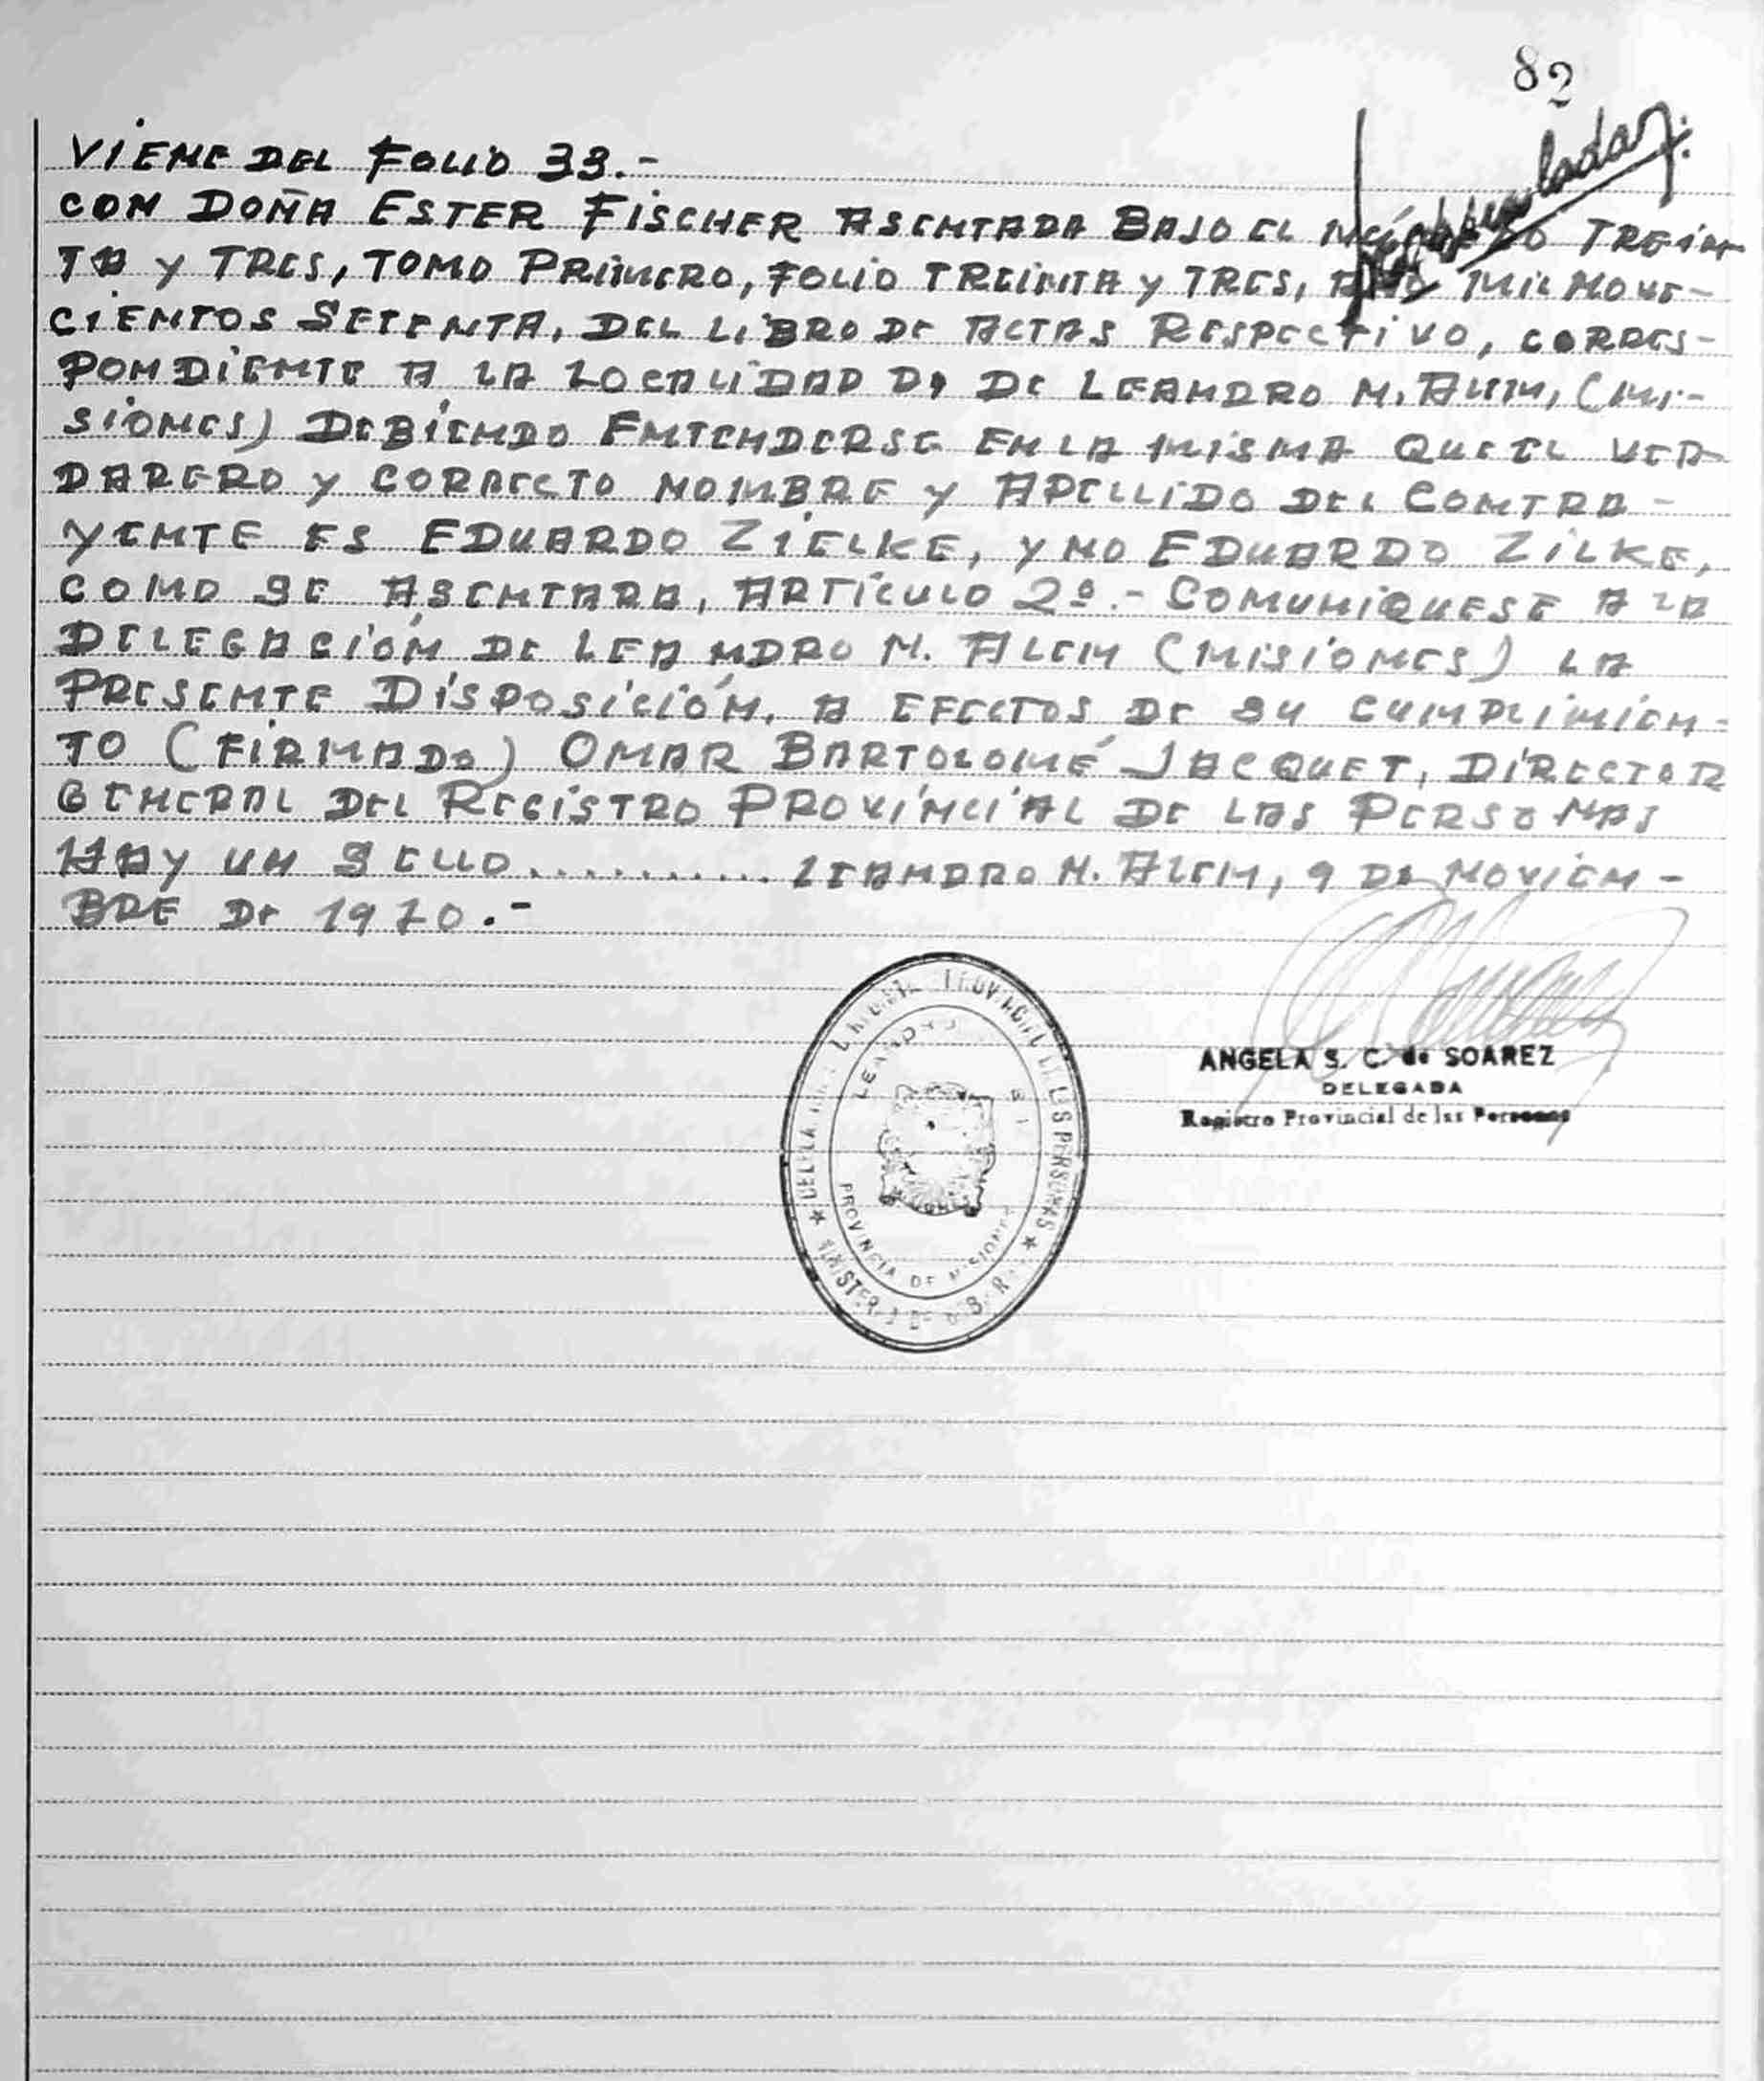 82
VIENE DEL FOLIO 33.-
CON DOÑA ESTER FISCHER ASENTADA BAJO EL TREIN
TA Y TRES, TOMO PRIMERO, FOLIO TREINTA Y TRES, AÑO MIL NOVE-
CIENTOS SETENTA, DEL LIBRO DE ACTAS RESPECTIVO, CORRES-
PONDIENTE A LA LOCALIDAD D, DE LEANDRO N. ALEM, (MI-
SIONES) DEBIENDO ENTENDERSE EN LA MISMA QUE EL VER
DARERO Y CORRECTO NOMBRE Y APELLIDO DEL CONTRA-
YENTE ES EDUARDO ZIELKE, Y NO EDUARDO ZILKE,
COMO SE ASENTARA, ARTÍCULO 2º.- COMUNIQUESE A LA
DELEGACIÓN DE LEANDRO N. ALEM (MISIONES) LA
PRESENTE DISPOSICIÓN, A EFECTOS DE SU CUMPLIMIEN-
TO (FIRMADO) OMAR BARTOLOMÉ JACQUET, DIRECTOR
GENERAL DEL REGISTRO PROVINCIAL DE LAS PERSONAS
HAY UN SELLO........... LEANDRO N. ALEM, 9 DE NOVIEM-
BRE DE 1970.-
ANGELA S. C. de SOAREZ
DELEGADA
Registro Provincial de las Personas
PROVINCIAL DE LAS PERSONAS
PROVINCIA DE MISIONES